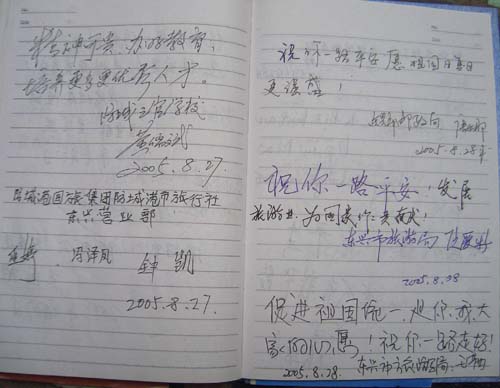 精神可贵，办好教育，
培养更多更优秀人才。
防城
2005.8.27.
防城港国旅集团防城港市旅行社
东兴营业部
冯泽凤 钟凯
2005.8.27.
祝你一路平安 愿祖国日易日
更强盛！
2005.8.28
祝你一路平安！发展
旅游业，为国家作
东兴市旅游局
2005.8.28
促进祖国统一，是你我大
家的心愿！祝你一路走好！
2005.8.28. 东兴市旅游局